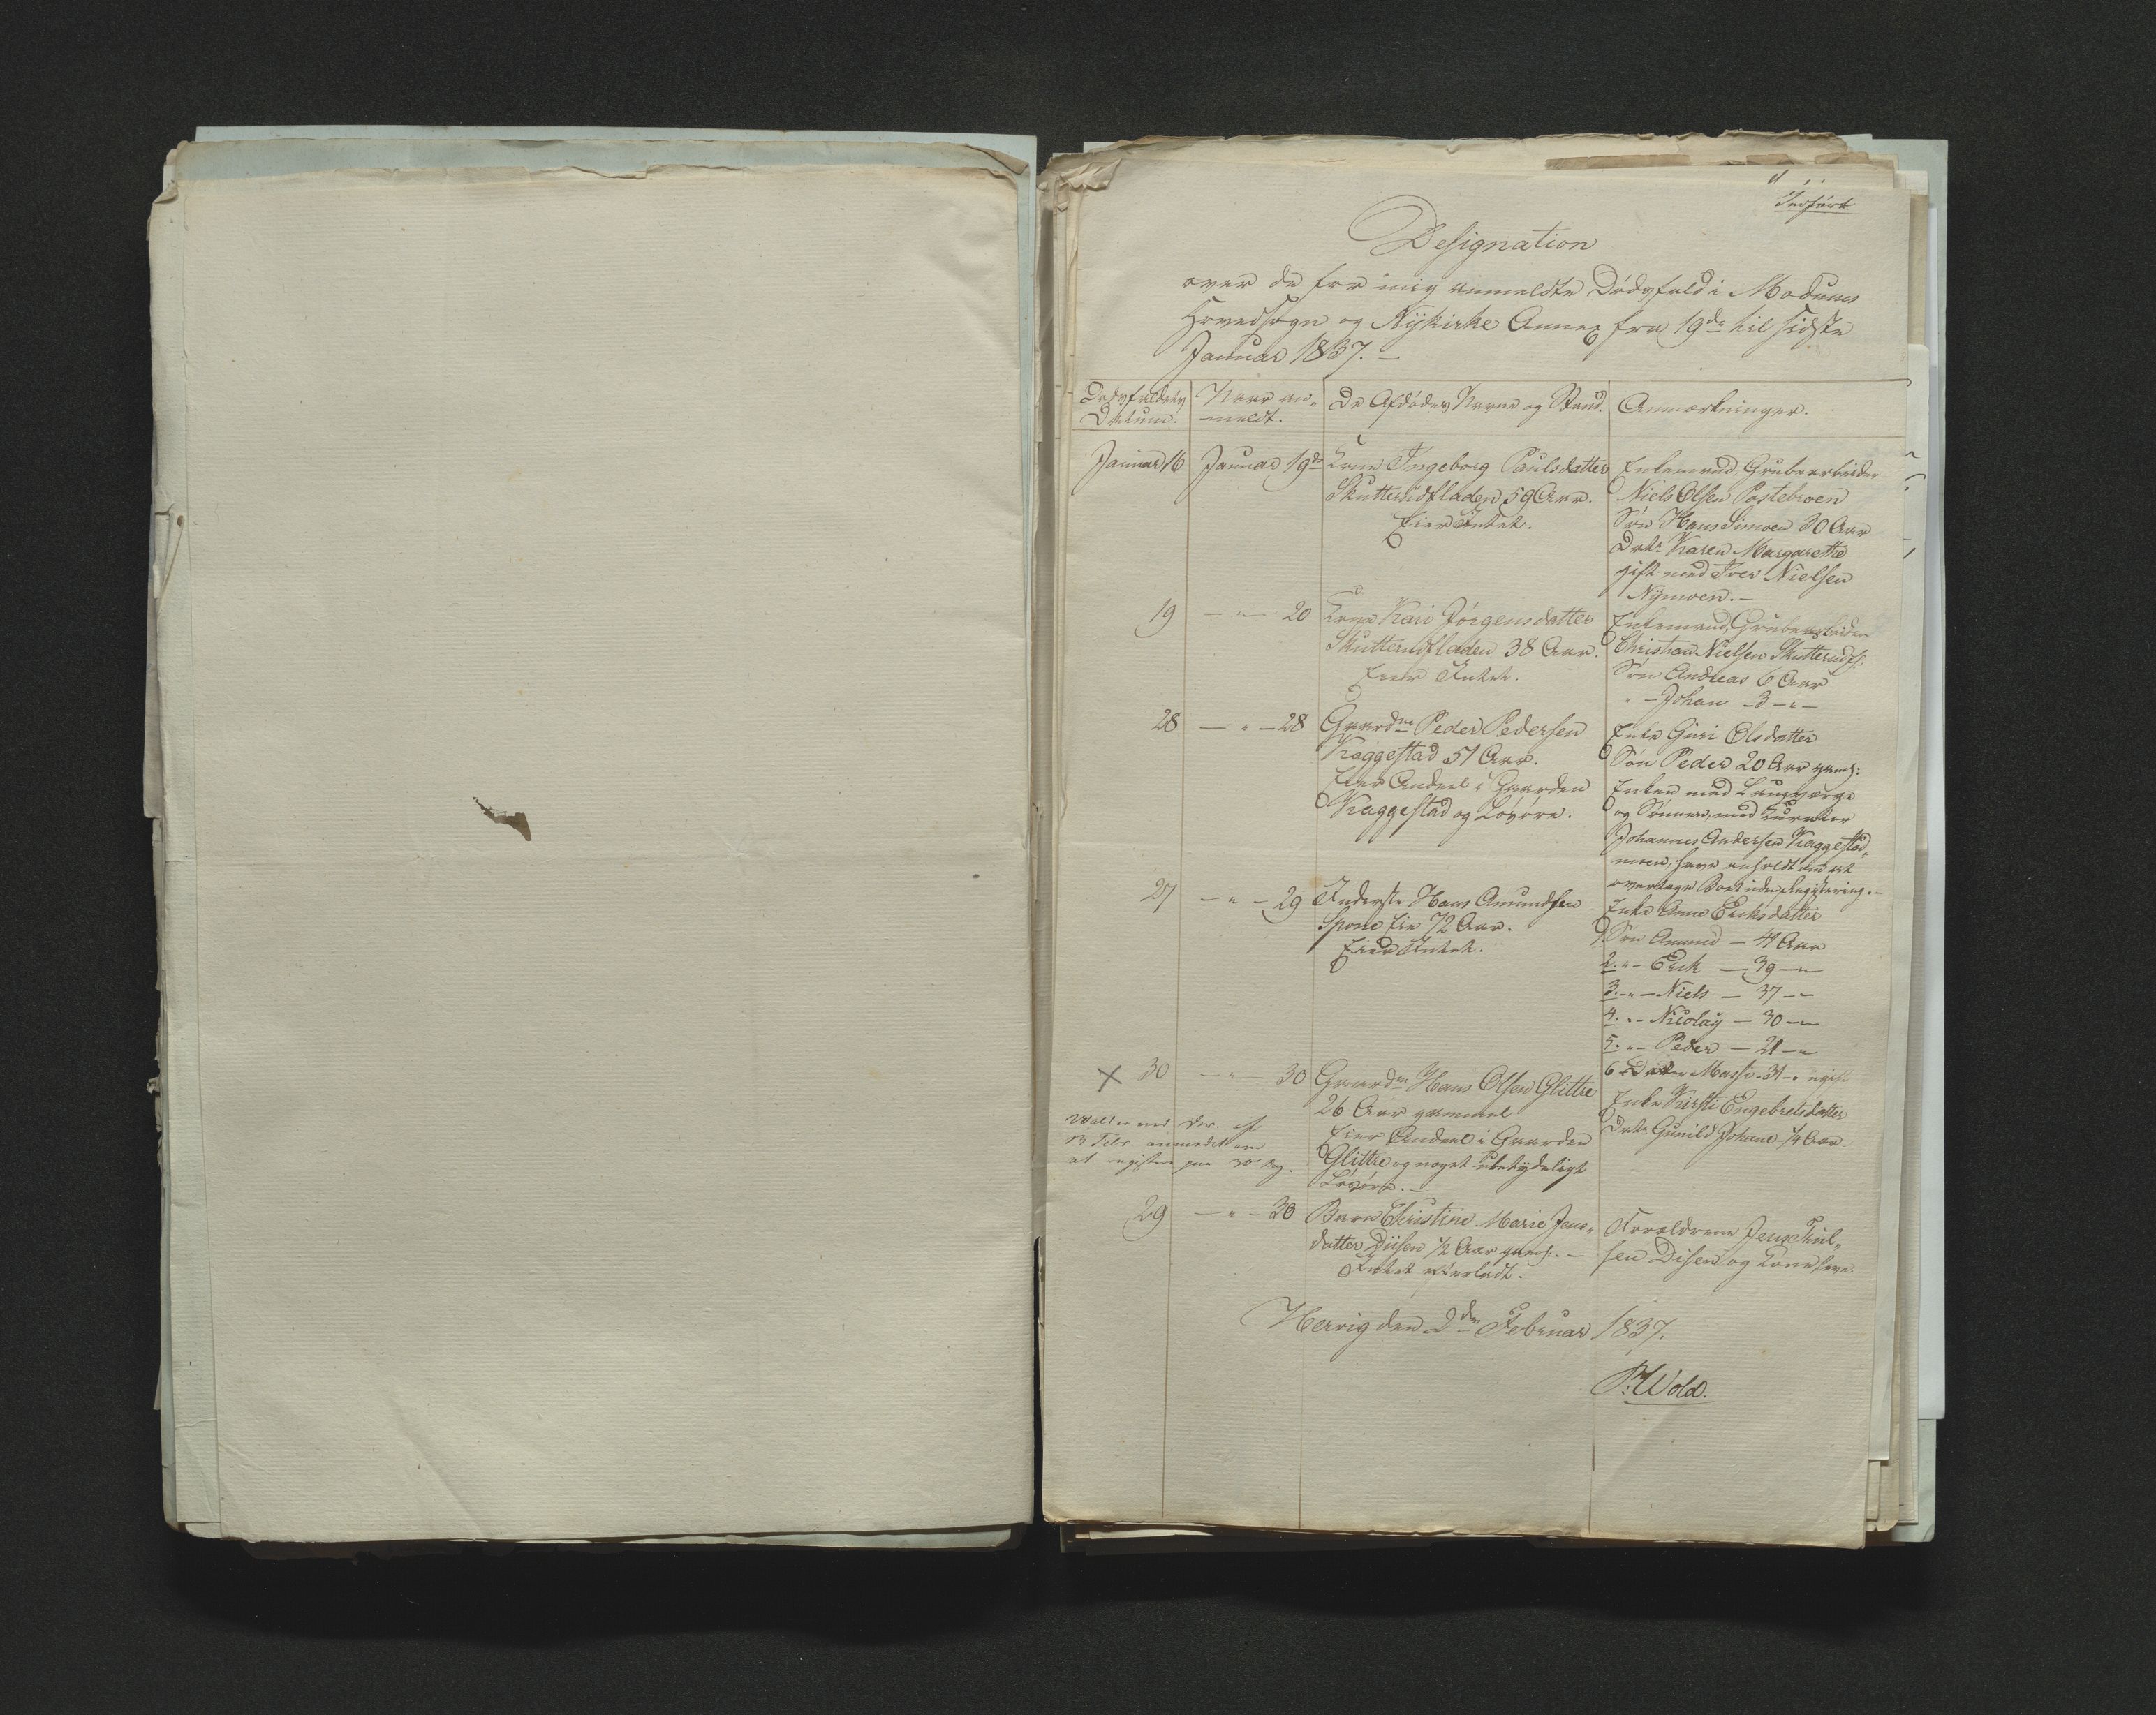 Indført
Designation
over de for mig anmeldte Dødsfald i Modums
Hovedsogn og Nykirke Annex fra 19de til sidste
Januar 1837. –
Dødsfaldets
Datum.
Naar an-
meldt.
De Afdødes Navne og Stand.
Anmærkninger.
Januar 16
Januar 19de
Kone Ingeborg Paulsdatter
Skutterudfladen 59 Aar.
Eier Intet.
Enkemand, Grubearbeider
Niels Olsen Postebroen
Søn Hans Simoen 30 Aar
Datr Karen Margarethe
gift med Iver Nielsen
Nymoen. –
19
– " – 20
Kone Kari Jørgensdatter
Skutterudfladen 38 Aar.
Eier Intet.
Enkemand, Grubearbeider
Christian Nielsen Skutterudfl:
Søn Andreas 6 Aar
" – Johan – 3 – " –
28
– " – 28
Gaardm Peder Pedersen
Kaggestad 51 Aar.
Eier Andeel i Gaarden
Kaggestad og Løsøre.
Enke Guri Olsdatter
Søn Peder 20 Aar gaml:
Enken med Laugværge
og Sønnen, med Curator
Johannes Andersen Kaggestad
moen, have anholdt om at
overtage Boet uden Registrering. –
27
– " – 29
Inderste Hans Amundsen
Spone Eie 72 Aar.
Eier Intet.
Enke Anne Eriksdatter
1. Søn Amund – 41 Aar
2. " – Erik – 39 – "
3. " – Niels – 37 – "
4. " – Nicolay – 30 – "
5. " – Peder – 21 – "
6 – Datter Massi – 31 – " ugift
30
– " – 30
Gaardm Hans Olsen Glittre
26 Aar gammel
Eier Andeel i Gaarden
Glittre og noget ubetydeligt
Løsøre. –
Enke Kirsti Engebretsdatter
Datr Gunild Johane 1/4 Aar
29
– " – 30
Barn Christine Marie Jens-
datter Diisen 1/2 Aar gaml: –
Intet efterladt.
Forældrene Jens Paul-
sen Disen og Kone leve.
Hervig den 2den Februar 1837.
P. Wold.